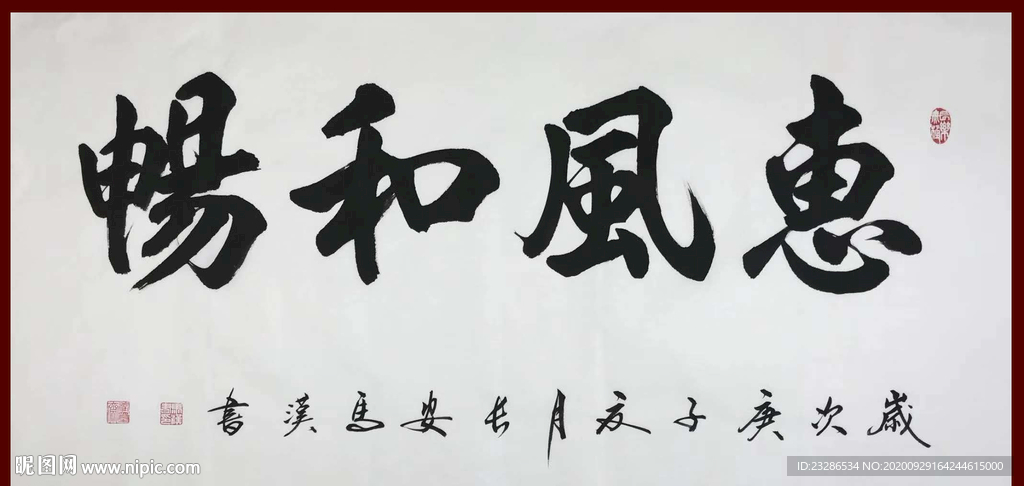 惠風和暢
歲次庚子夏月長安馬漢書
昵图网 www.nipic.com
ID:23286534 NO:20200929164244615000